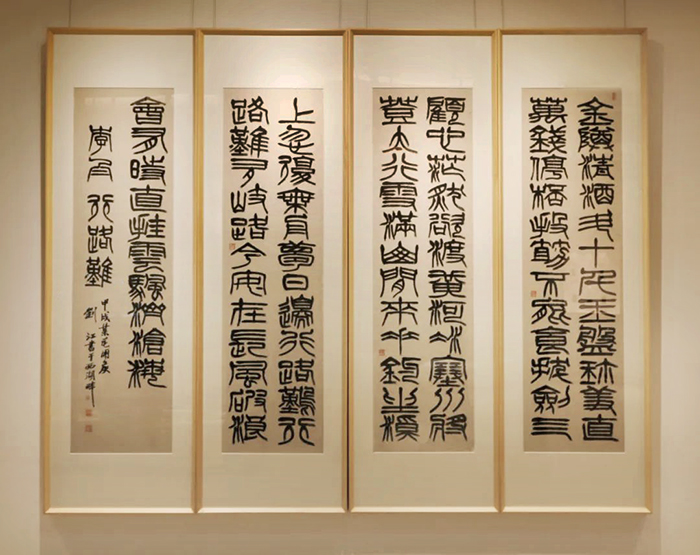 金樽清酒斗十千玉盤珍羞直
萬錢停杯投箸不能食拔劍四
顧心茫然欲渡黃河冰塞川將
登太行雪滿山閒來垂釣坐溪
上忽復乘舟夢日邊行路難行
路難多歧路今安在長風破浪
會有時直挂雲帆濟滄海
李白行路難
甲戌國慶
劉江書于西湖畔